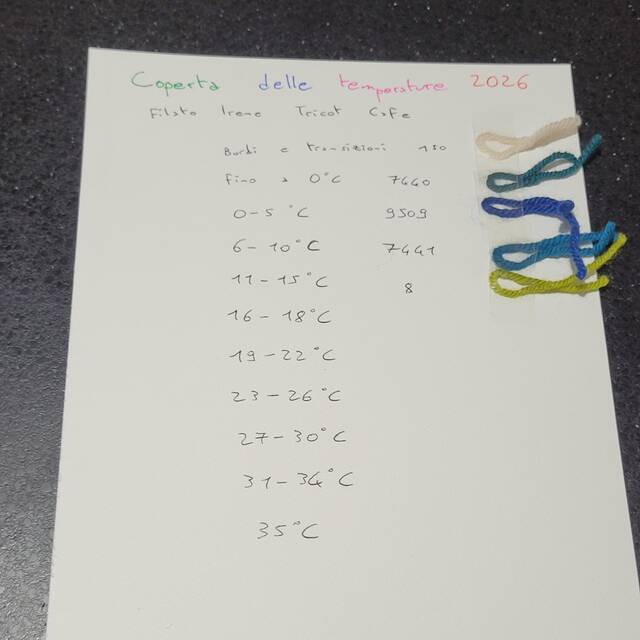 Coperta delle temperature 2026
Filato Irene Tricot Cafe
Bordi e transizioni 180
Fino a 0°C 7440
0-5 °C 9509
6-10°C 7441
11-15°C 8
16-18°C
19-22°C
23-26°C
27-30°C
31-34°C
35°C